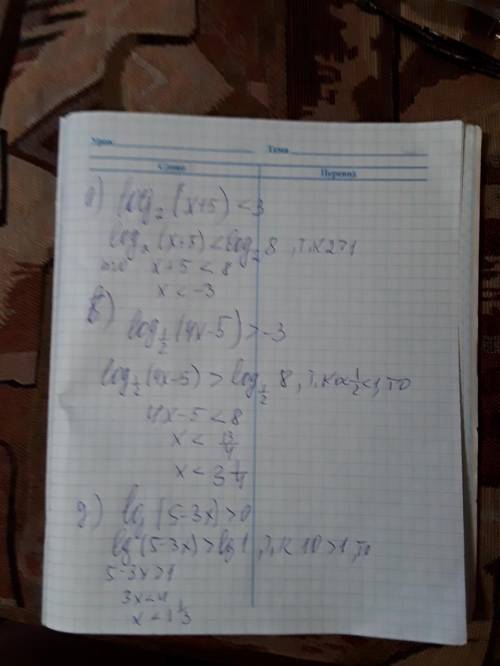 Урок Тема
Слово Перевод
а) log₂ (x+5) < 3
log₂ (x+5) < log₂ 8 , т.к 2>1
то x+5 < 8
x < -3
в) log_{1/2} (4x-5) > -3
log_{1/2} (4x-5) > log_{1/2} 8 , т.к 0<1/2<1, то
4x-5 < 8
x < 13/4
x < 3 1/4
д) lg (5-3x) > 0
lg (5-3x) > lg 1 , т.к 10 > 1, то
5-3x > 1
3x < 4
x < 1 1/3